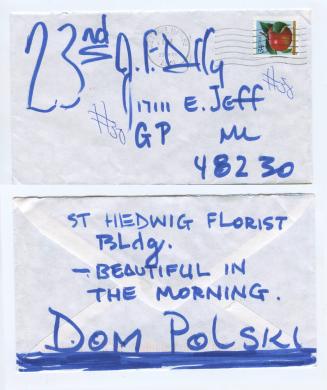 23rd
17111 E. Jeff
GP
48230
#38
#38
ST HEDWIG FLORIST
BLdg.
- BEAUTIFUL IN
THE MORNING.
DOM POLSKI